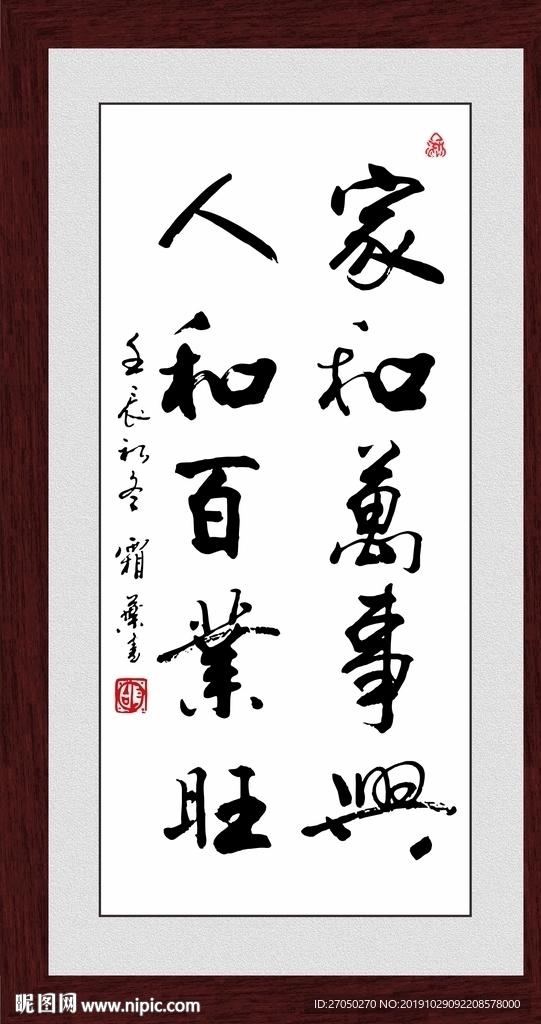 家和萬事興
人和百業旺
壬辰初冬 霜葉書
昵图网 www.nipic.com
ID:27050270 NO:20191029092208578000